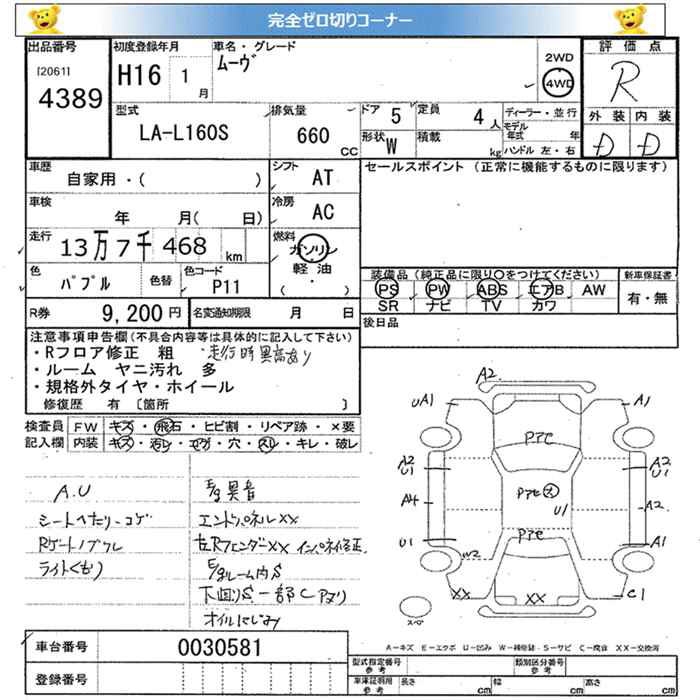 完全ゼロ切りコーナー
出品番号 初度登録年月 車名・グレード 2WD 評価点
[2061] H16 1月 ムーヴ 4WD R
4389
型式 排気量 ドア 5 定員 4人 ディーラー・並行 外装 内装
LA-L160S 660 CC 形状 W 積載 kg モデル年式 年 D D
ハンドル 左・右
車歴 シフト セールスポイント (正常に機能するものに限ります)
自家用・( ) AT
車検 冷房
年 月( 日) AC
走行 13万7千468km 燃料 ガソリン
軽油
( ・ )
色 パプル 色替 色コード P11
装備品(純正品に限り○をつけてください) 新車保証書
PS PW ABS エアB AW 有・無
SR ナビ TV カワ
R券 9,200円 名変通知期限 月 日
後日品
注意事項申告欄(不具合内容等は具体的に記入して下さい)
・Rフロア修正 粗 ・走行時異音あり
・ルーム ヤニ汚れ 多
・規格外タイヤ・ホイール
修復歴 有 〔箇所 〕
検査員 FW キズ・飛石・ヒビ割・リペア跡・×要
記入欄 内装 キズ・汚レ・コゲ・穴・スレ・キレ・破レ
A.U
シートへたり-コゲ
Rゲートノブクレ
ライトくもり
E/g異音
エンドパネルXX
左RフェンダーXX インパネ修正
E/gルーム内S
下回りS 一部C Pヌリ
オイルにじみ
A2
UA1 A1
Pアセ
A2 U1 A2 U1
A4 Pアセ ス U1 A2
U1 Pアセ A1
W2
XX XX C1
スペア
A-キズ E-エクボ U-凹み W-補修跡 S-サビ C-腐食 XX-交換済
車台番号 0030581
登録番号
型式指定番号 参考 類別区分番号 参考
車庫証明用 参考 長さ cm 幅 cm 高さ cm